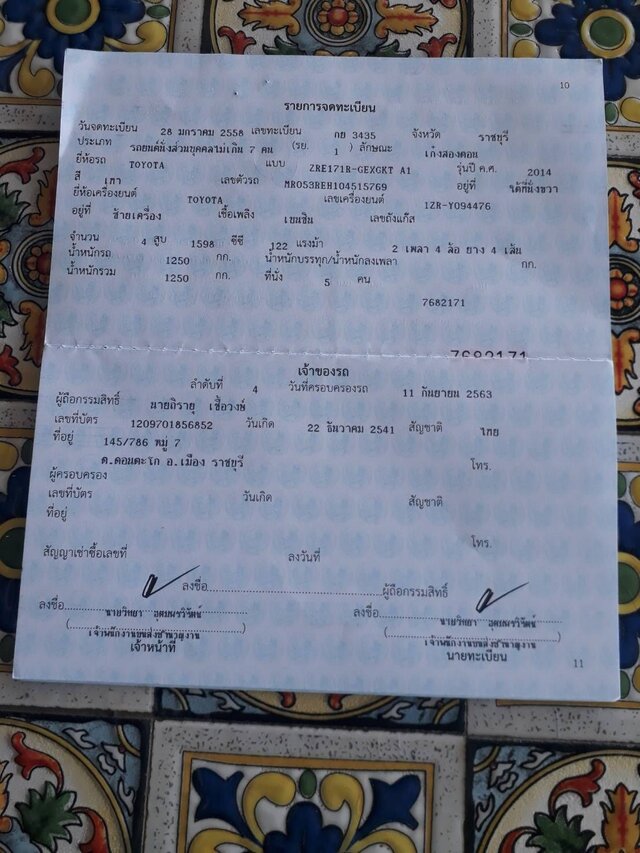 10
รายการจดทะเบียน
วันจดทะเบียน 28 มกราคม 2558 เลขทะเบียน กย 3435 จังหวัด ราชบุรี
ประเภท รถยนต์นั่งส่วนบุคคลไม่เกิน 7 คน (รย. 1 ) ลักษณะ เก๋งสองตอน
ยี่ห้อรถ TOYOTA แบบ ZRE171R-GEXGKT A1 รุ่นปี ค.ศ. 2014
สี เทา เลขตัวรถ MR053REH104515769 อยู่ที่ ใต้ที่นั่งขวา
ยี่ห้อเครื่องยนต์ TOYOTA เลขเครื่องยนต์ 1ZR-Y094476
อยู่ที่ ซ้ายเครื่อง เชื้อเพลิง เบนซิน เลขถังแก๊ส
จำนวน 4 สูบ 1598 ซีซี 122 แรงม้า 2 เพลา 4 ล้อ ยาง 4 เส้น
น้ำหนักรถ 1250 กก. น้ำหนักบรรทุก/น้ำหนักลงเพลา กก.
น้ำหนักรวม 1250 กก. ที่นั่ง 5 คน
7682171
7682171
เจ้าของรถ
ลำดับที่ 4 วันที่ครอบครองรถ 11 กันยายน 2563
ผู้ถือกรรมสิทธิ์ นายถิรายุ เชื้อวงษ์
เลขที่บัตร 1209701856852 วันเกิด 22 ธันวาคม 2541 สัญชาติ ไทย
ที่อยู่ 145/786 หมู่ 7
ต.ดอนตะโก อ.เมือง ราชบุรี โทร.
ผู้ครอบครอง
เลขที่บัตร วันเกิด สัญชาติ
ที่อยู่
โทร.
สัญญาเช่าซื้อเลขที่ ลงวันที่
ลงชื่อ ผู้ถือกรรมสิทธิ์
ลงชื่อ นายวิทยา ลงชื่อ นายวิทยา
( เจ้าพนักงานขนส่งชำนาญงาน ) ( เจ้าพนักงานขนส่งชำนาญงาน )
เจ้าหน้าที่ นายทะเบียน
11